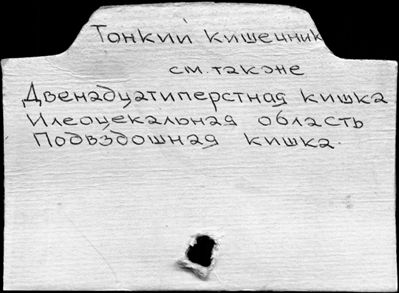 Тонкий кишечник
см. также
Двенадцатиперстная кишка
Илеоцекальная область
Подвздошная кишка.